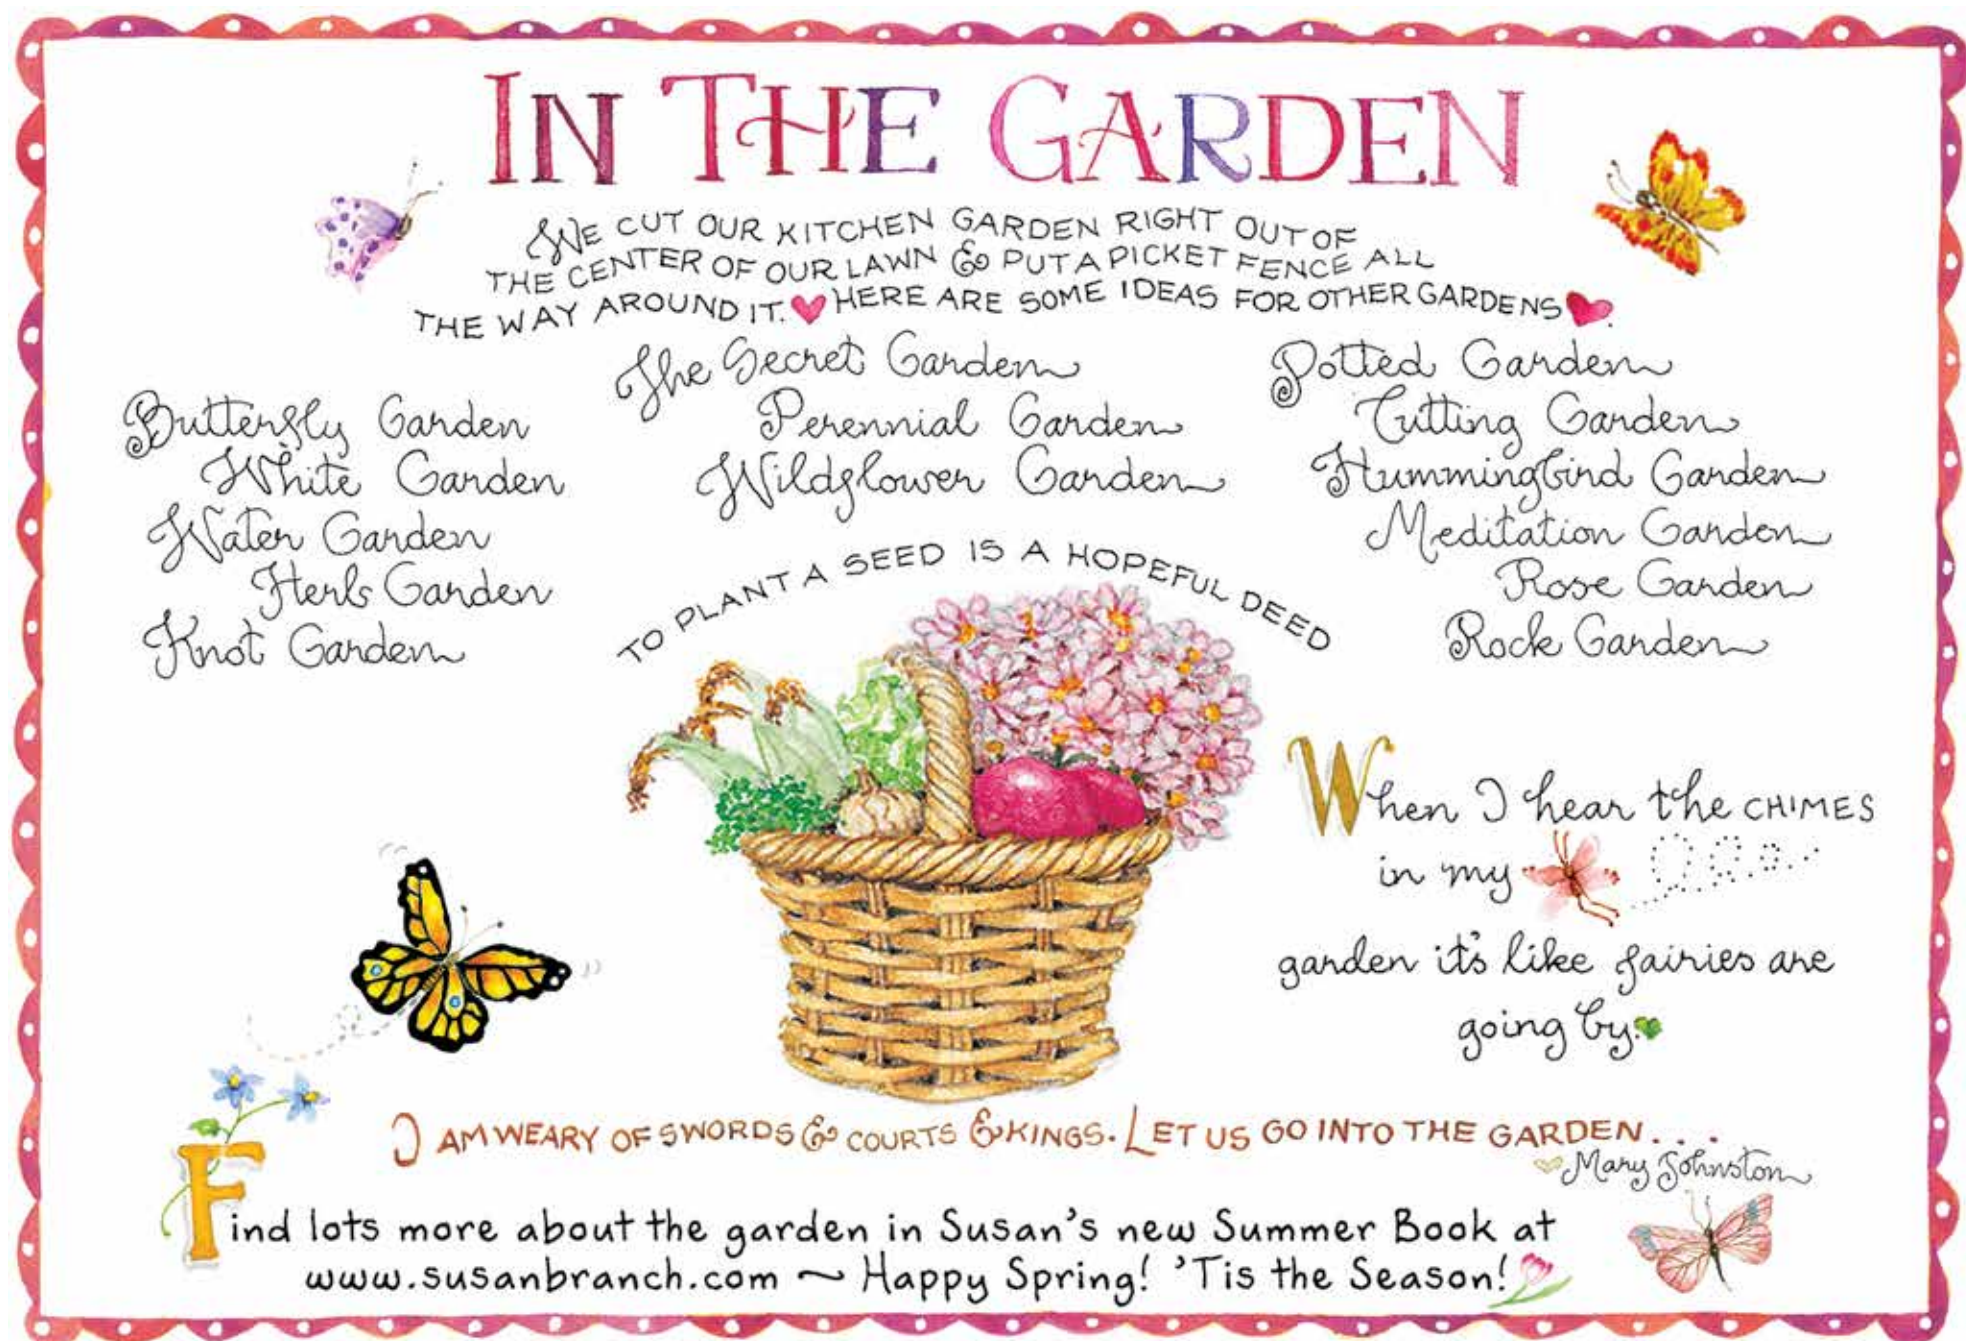 IN THE GARDEN
WE CUT OUR KITCHEN GARDEN RIGHT OUT OF
THE CENTER OF OUR LAWN & PUT A PICKET FENCE ALL
THE WAY AROUND IT. ♥ HERE ARE SOME IDEAS FOR OTHER GARDENS ♥.
Butterfly Garden
White Garden
Water Garden
Herb Garden
Knot Garden
The Secret Garden
Perennial Garden
Wildflower Garden
Potted Garden
Cutting Garden
Hummingbird Garden
Meditation Garden
Rose Garden
Rock Garden
TO PLANT A SEED IS A HOPEFUL DEED
When I hear the CHIMES
in my
garden it's like fairies are
going by.
I AM WEARY OF SWORDS & COURTS & KINGS. LET US GO INTO THE GARDEN...
♥ Mary Johnston
Find lots more about the garden in Susan's new Summer Book at
www.susanbranch.com ~ Happy Spring! 'Tis the Season!